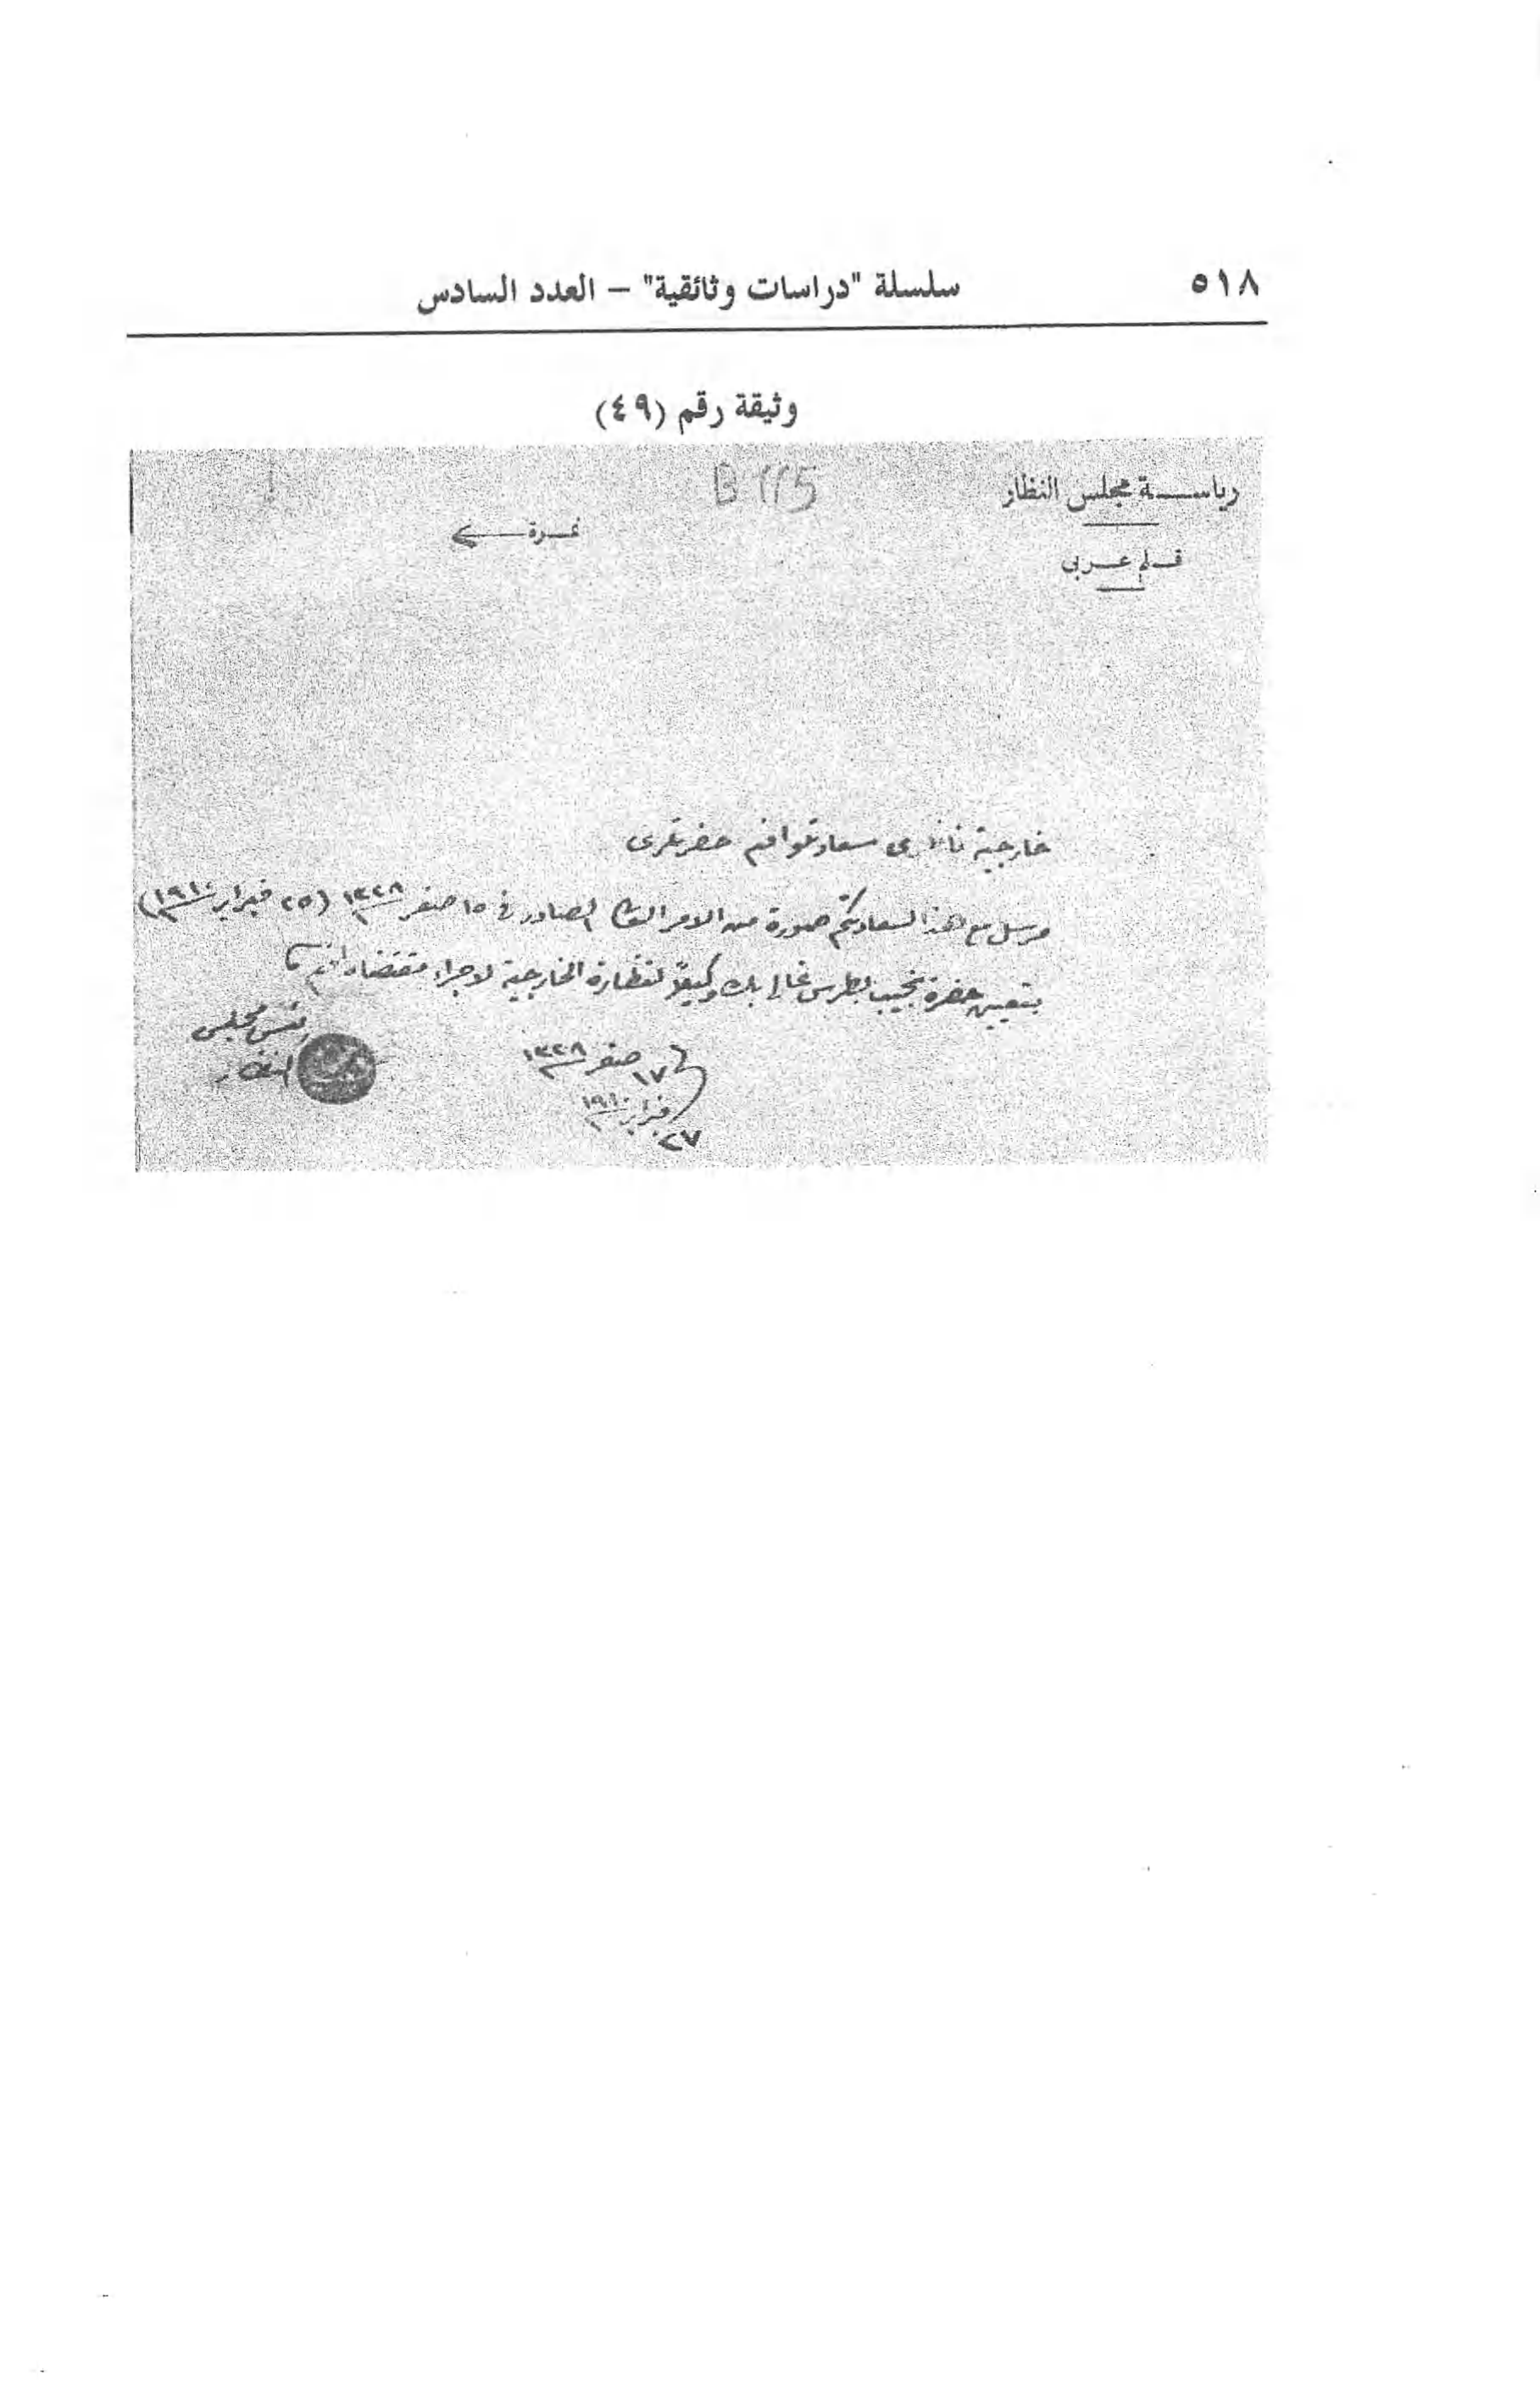 ٥١٨
سلسلة "دراسات وثائقية" – العدد السادس
وثيقة رقم (٤٩)
B 115
رياسة مجلس النظار
نمرة
قلم عربى
خارجية ناظرى سعادتلو افندم حضرتلرى
مرسل مع هذا لسعادتكم صورة من الامر العالى الصادر فى ١٥ صفر ١٣٢٨ (٢٥ فبراير ١٩١٠)
بتعيين حضرة نجيب بطرس غالى بك وكيلاً لنظارة الخارجية لاجراء مقتضاه افندم
رئيس مجلس
النظار
١٧ صفر ١٣٢٨
٢٧ فبراير ١٩١٠